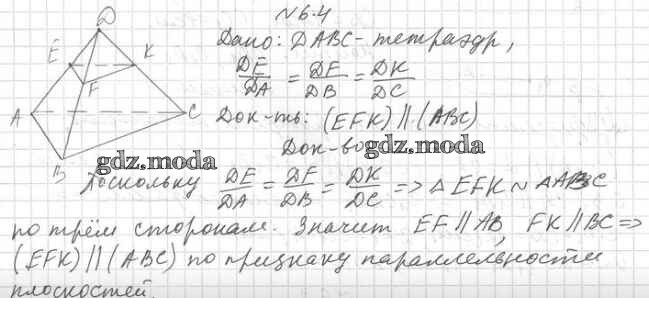 № 6.4
Дано: DABC - тетраэдр,
DE/DA = DF/DB = DK/DC
Док-ть: (EFK) || (ABC)
Док-во
gdz.moda
gdz.moda
Поскольку DE/DA = DF/DB = DK/DC => △ EFK ~ △ABC
по трём сторонам. Значит EF || AB, FK || BC =>
(EFK) || (ABC) по признаку параллельности
плоскостей.
D
E
K
F
A
C
B